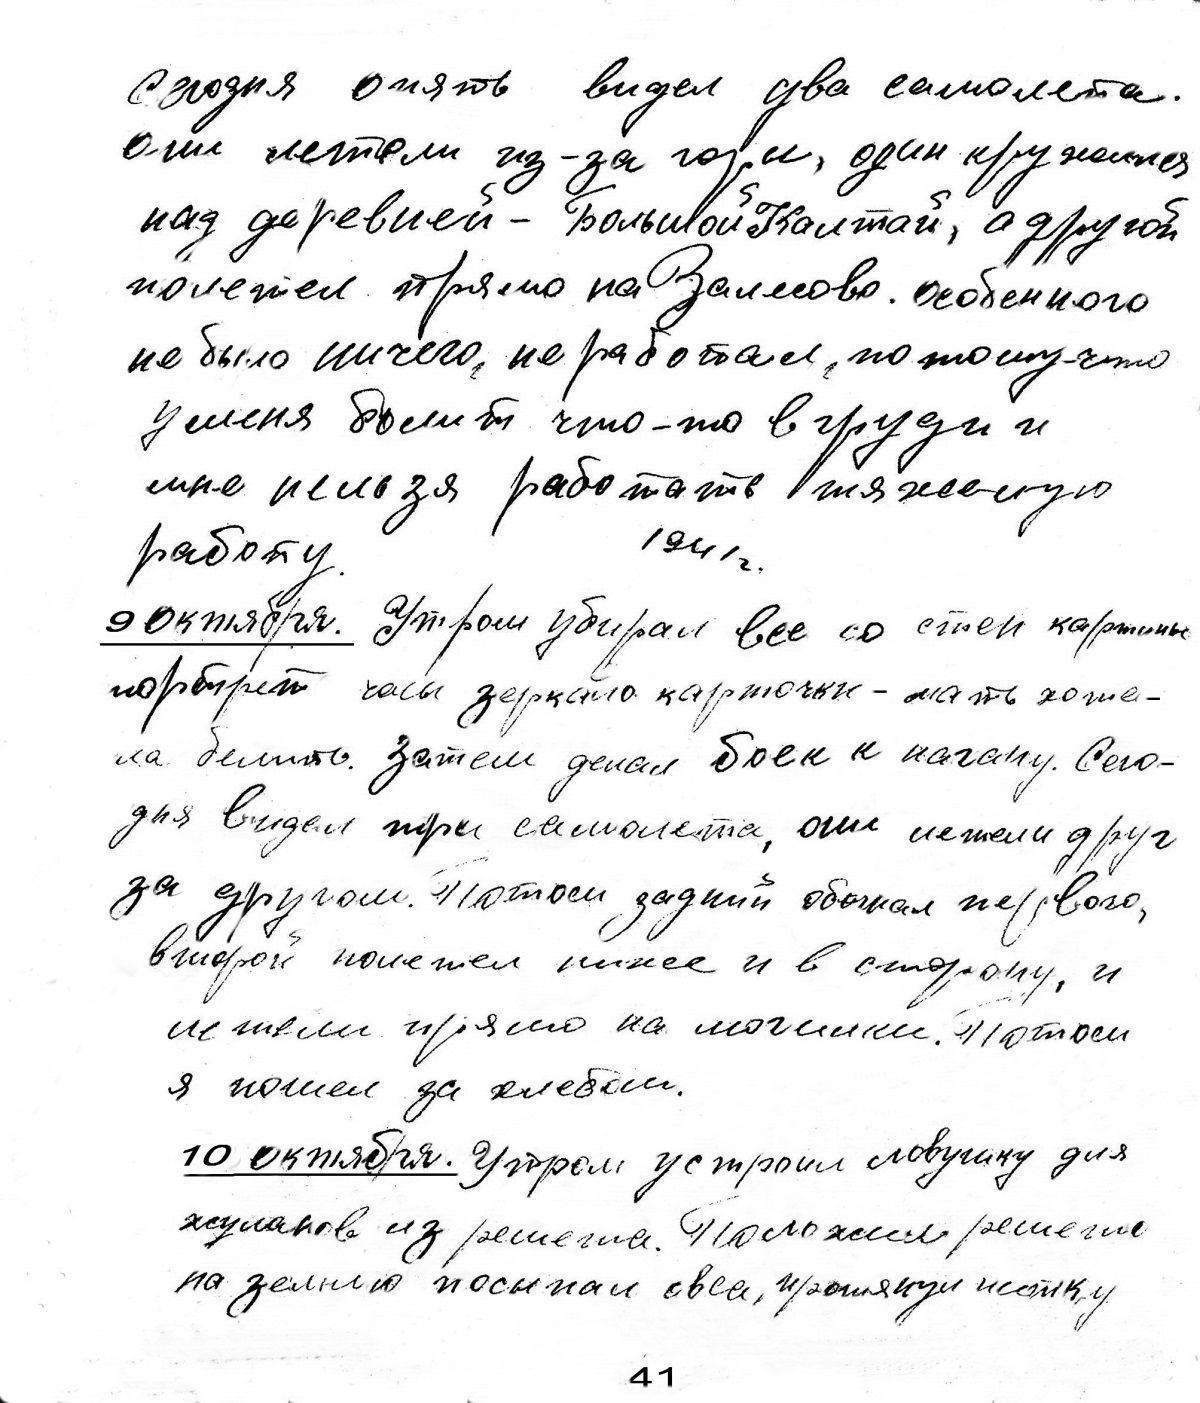 Сегодня опять видел два самолета.
Они летели из-за горы, один кружился
над деревней - Большой Калтай, а другой
полетел прямо на Залесово. Особенного
не было ничего, не работал, потому-что
у меня болит что-то в груди и
мне нельзя работать тяжелую
работу. 1941 г.
9 Октября. Утром убирал все со стен картины
портрет часы зеркало карточки - мать хоте-
ла белить. Затем делал боек к нагану. Сего-
дня видел три самолета, они летели друг
за другом. Потом задний обогнал первого,
второй полетел ниже и в сторону, и
летели прямо на могилки. Потом
я пошел за хлебом.
10 Октября. Утром устроил ловушку для
жуланов из решета. Положил решето
на землю посыпал овса, протянул нитку
41